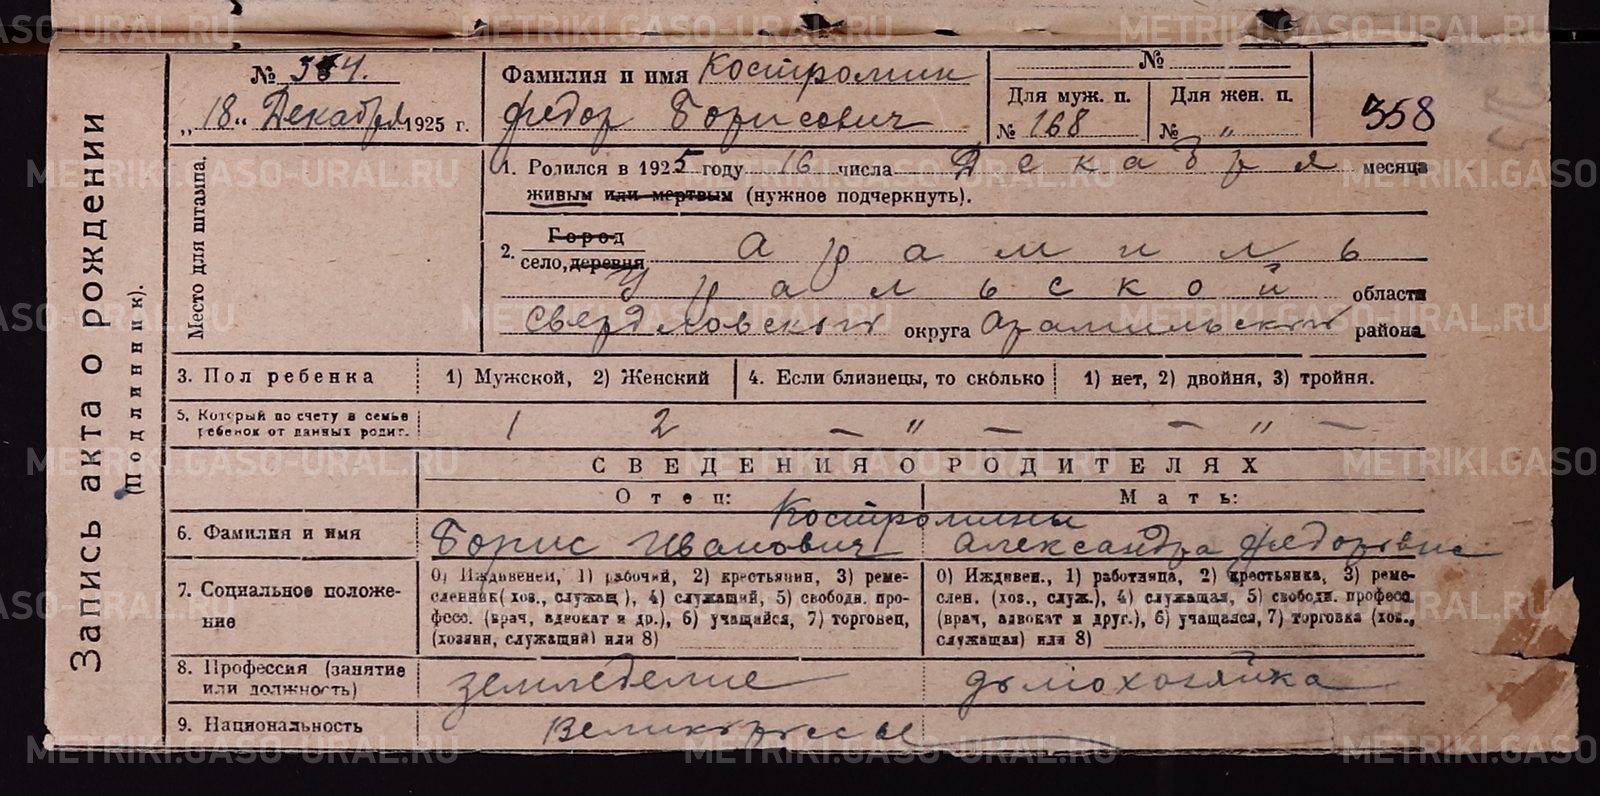 Запись акта о рождении
(Подлинник).
№ 354.
„18„ Декабря 1925 г.
Место для штампа.
Фамилия и имя Костромин
Федор Борисович
№
Для муж. п. Для жен. п.
№ 168 № „
358
1. Родился в 1925 году 16 числа Декабря месяца
живым или мертвым (нужное подчеркнуть).
2. Город
село, деревня Арамиль
Уральской области
Свердловского округа Арамильского района
3. Пол ребенка 1) Мужской, 2) Женский 4. Если близнецы, то сколько 1) нет, 2) двойня, 3) тройня.
5. Который по счету в семье
ребенок от данных родит. 1 2 — „ — — „ —
СВЕДЕНИЯ О РОДИТЕЛЯХ
Отец: Мать:
Костромины
6. Фамилия и имя Борис Иванович Александра Федоровна
7. Социальное положе-
ние
0) Иждивенец, 1) рабочий, 2) крестьянин, 3) реме-
сленник (хоз., служащ.), 4) служащий, 5) свободн. про-
фесс. (врач, адвокат и др.), 6) учащийся, 7) торговец,
(хозяин, служащий) или 8)
0) Иждивен., 1) работница, 2) крестьянка, 3) реме-
слен. (хоз., служ.), 4) служащая, 5) свободн. професс.
(врач, адвокат и друг.), 6) учащаяся, 7) торговка (хоз.,
служащая) или 8)
8. Профессия (занятие
или должность) земледелие домохозяйка
9. Национальность Великороссы
METRIKI.GASO-URAL.RU